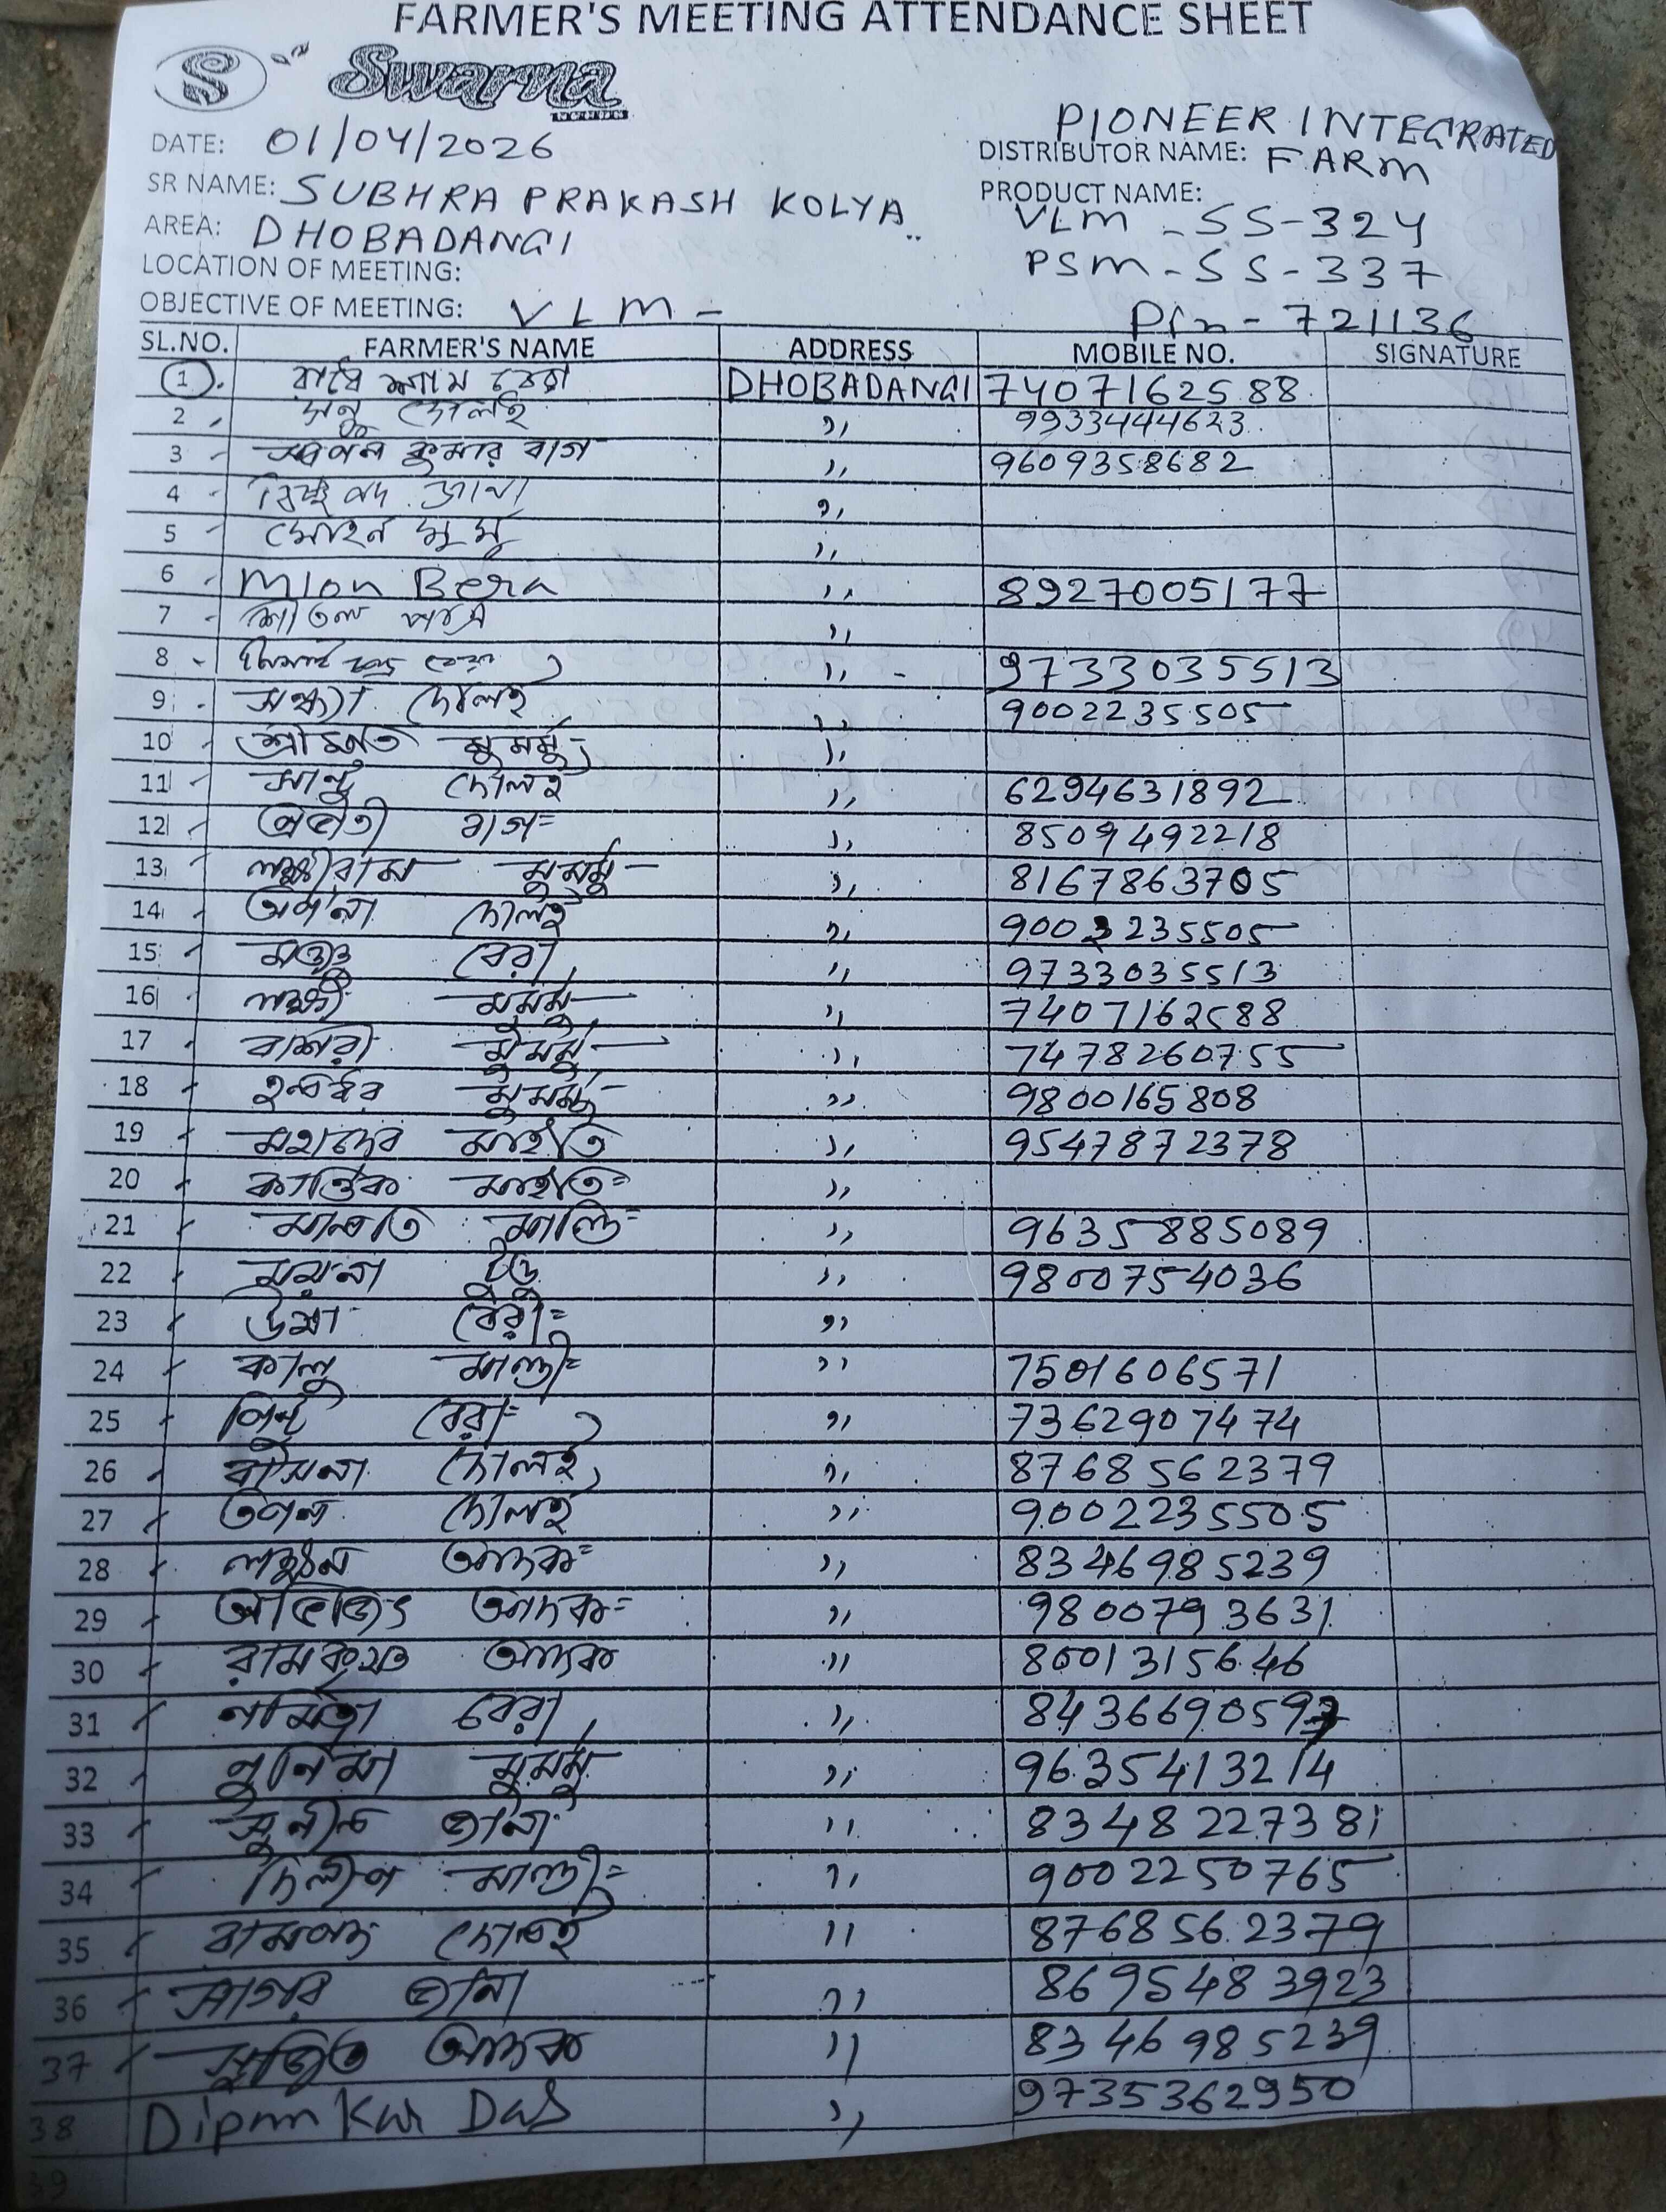 FARMER'S MEETING ATTENDANCE SHEET
S Swarna
DATE: 01/04/2026
PIONEER INTEGRATED
DISTRIBUTOR NAME: FARM
SR NAME: SUBHRA PRAKASH KOLYA
PRODUCT NAME:
VLM - SS-324
AREA: DHOBADANGI
PSM - SS-337
LOCATION OF MEETING:
OBJECTIVE OF MEETING: VLM -
Pin - 721136
SL.NO. FARMER'S NAME ADDRESS MOBILE NO. SIGNATURE
1. রাধে শ্যাম বেরা DHOBADANGI 7407162588
2 দোলই ,, 9933444623
3 স্বপন কুমার বাগ ,, 9609358682
4 জানা ,,
5 মুর্মু ,,
6 Mlon Bera ,, 8927005177
7 ,,
8 বেরা ,, 9733035513
9 সন্ধ্যা দোলই ,, 9002235505
10 শ্রীমতি মুর্মু ,,
11 সান্টু দোলই ,, 6294631892
12 বাগ ,, 8509492218
13 লক্ষ্মীরাম মুর্মু ,, 8167863705
14 অর্পনা দোলই ,, 9002235505
15 বেরা ,, 9733035513
16 লক্ষ্মী মুর্মু ,, 7407162588
17 মুর্মু ,, 7478260755
18 মুর্মু ,, 9800165808
19 মহাদেব মাইতি ,, 9547872378
20 কার্ত্তিক মাইতি ,,
21 মালতি মান্ডি ,, 9635885089
22 ময়না টুডু ,, 9800754036
23 উমা বেরা ,,
24 কালু মান্ডী ,, 7501606571
25 পিন্টু বেরা ,, 7362907474
26 বাসনা দোলই ,, 8768562379
27 তপন দোলই ,, 9002235505
28 লক্ষ্মন আদক ,, 8346985239
29 অভিজিৎ আদক ,, 9800793631
30 রামকৃষ্ণ আদক ,, 8001315646
31 নমিতা বেরা ,, 8436690597
32 পুর্নিমা মুর্মু ,, 9635413214
33 জানা ,, 8348227381
34 দিলীপ মান্ডী ,, 9002250765
35 রামপদ দোলই ,, 8768562379
36 সাগর জানা ,, 8695483923
37 সুজিত আদক ,, 8346985239
38 Dipankar Das ,, 9735362950
39